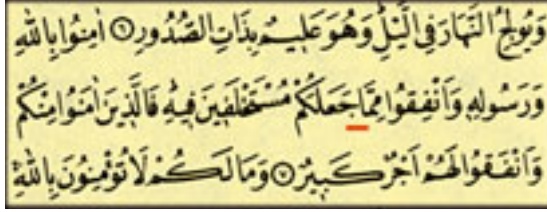 وَيُولِجُ النَّهَارَ فِي الَّيْلِۜ وَهُوَ عَلِيمٌ بِذَاتِ الصُّدُورِ ﴿٦﴾ اٰمِنُوا بِاللّٰهِ
وَرَسُولِهٖ وَاَنْفِقُوا مِمَّا جَعَلَكُمْ مُسْتَخْلَفٖينَ فٖيهِۜ فَالَّذٖينَ اٰمَنُوا مِنْكُمْ
وَاَنْفَقُوا لَهُمْ اَجْرٌ كَبٖيرٌ ﴿٧﴾ وَمَا لَكُمْ لَا تُؤْمِنُونَ بِاللّٰهِۚ